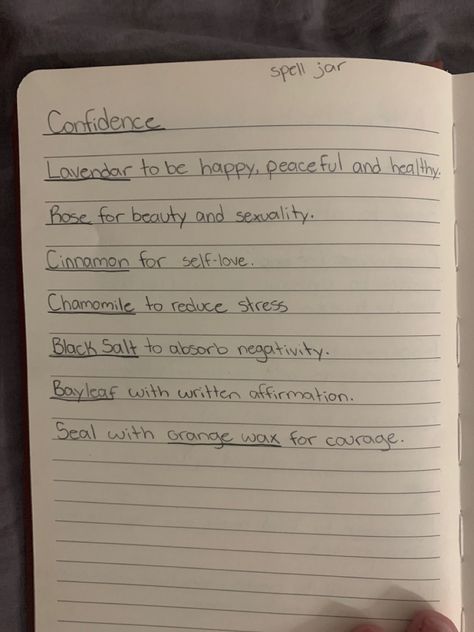 spell jar
Confidence
Lavendar to be happy, peaceful and healthy.
Rose for beauty and sexuality.
Cinnamon for self-love.
Chamomile to reduce stress
Black Salt to absorb negativity.
Bayleaf with written affirmation.
Seal with orange wax for courage.